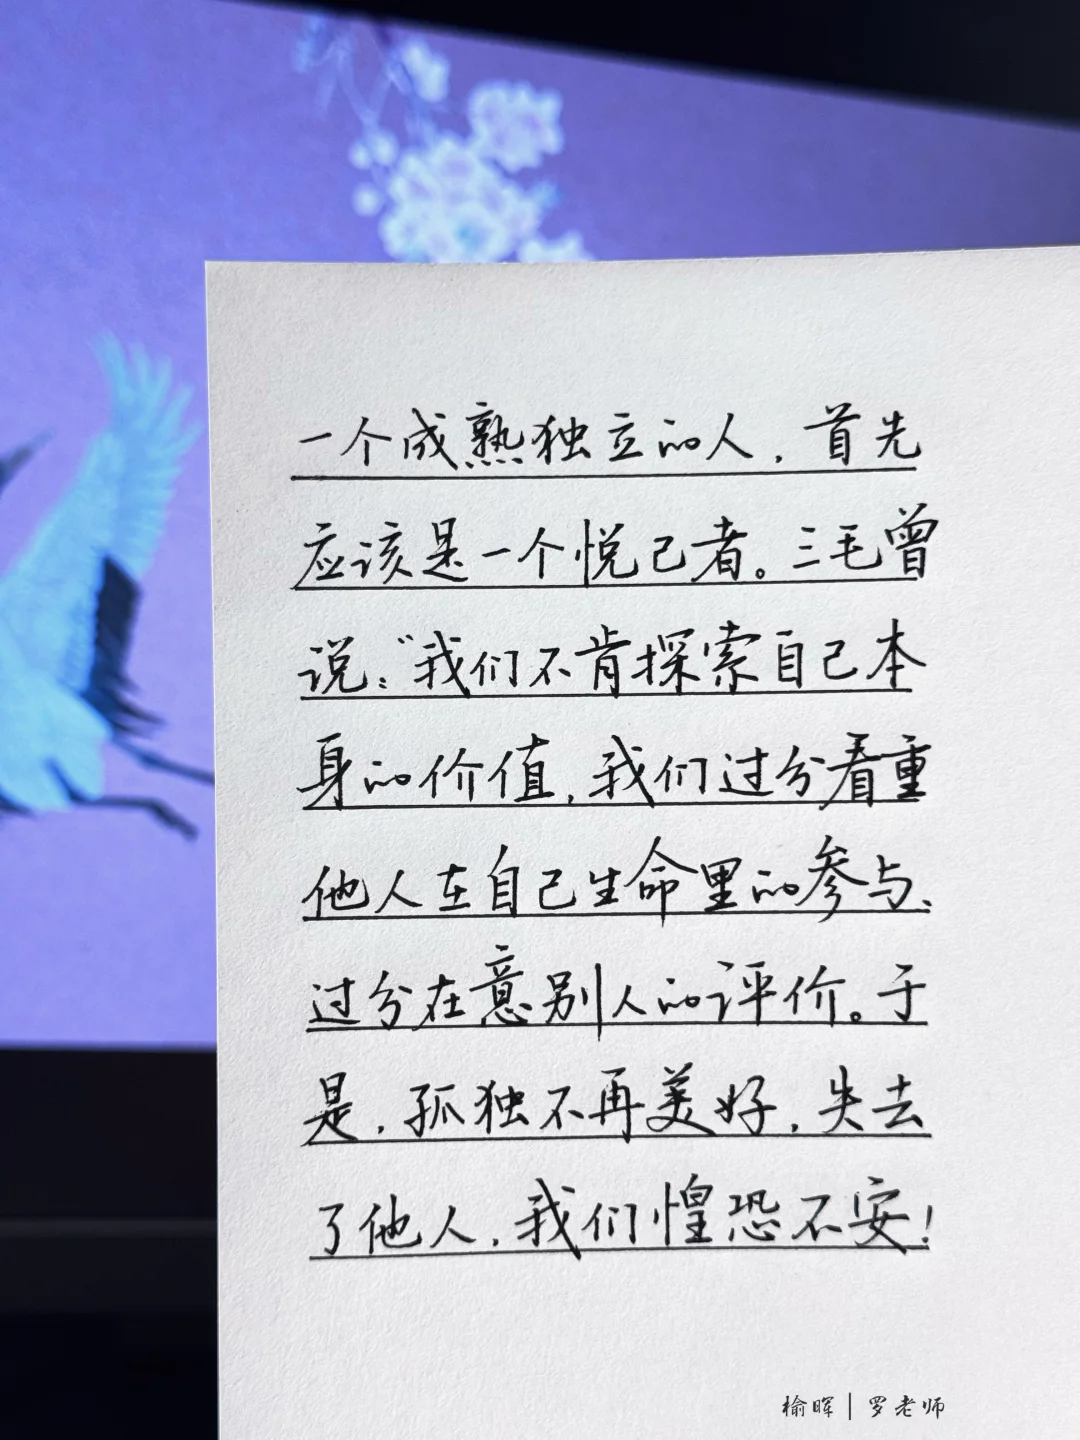 一个成熟独立的人，首先
应该是一个悦己者。三毛曾
说：“我们不肯探索自己本
身的价值，我们过分看重
他人在自己生命里的参与、
过分在意别人的评价。于
是，孤独不再美好，失去
了他人，我们惶恐不安！
榆晖|罗老师